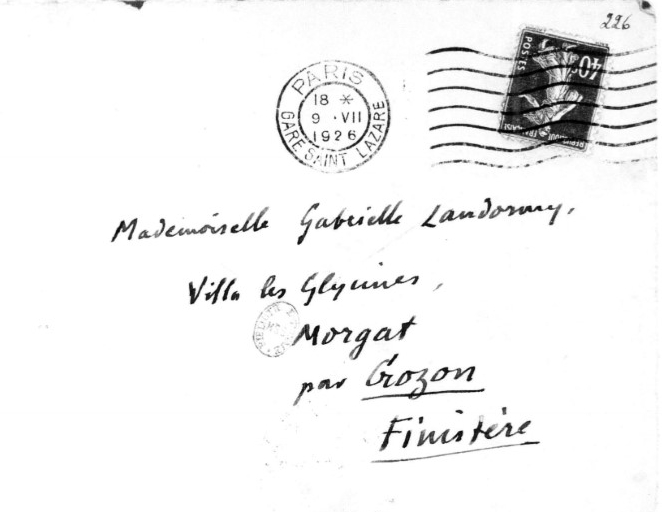 226
PARIS
18 *
9 · VII
1926
GARE SAINT LAZARE
POSTES
40c
Mademoiselle Gabrielle Landormy,
Villa les Glycines,
Morgat
par Crozon
Finistère